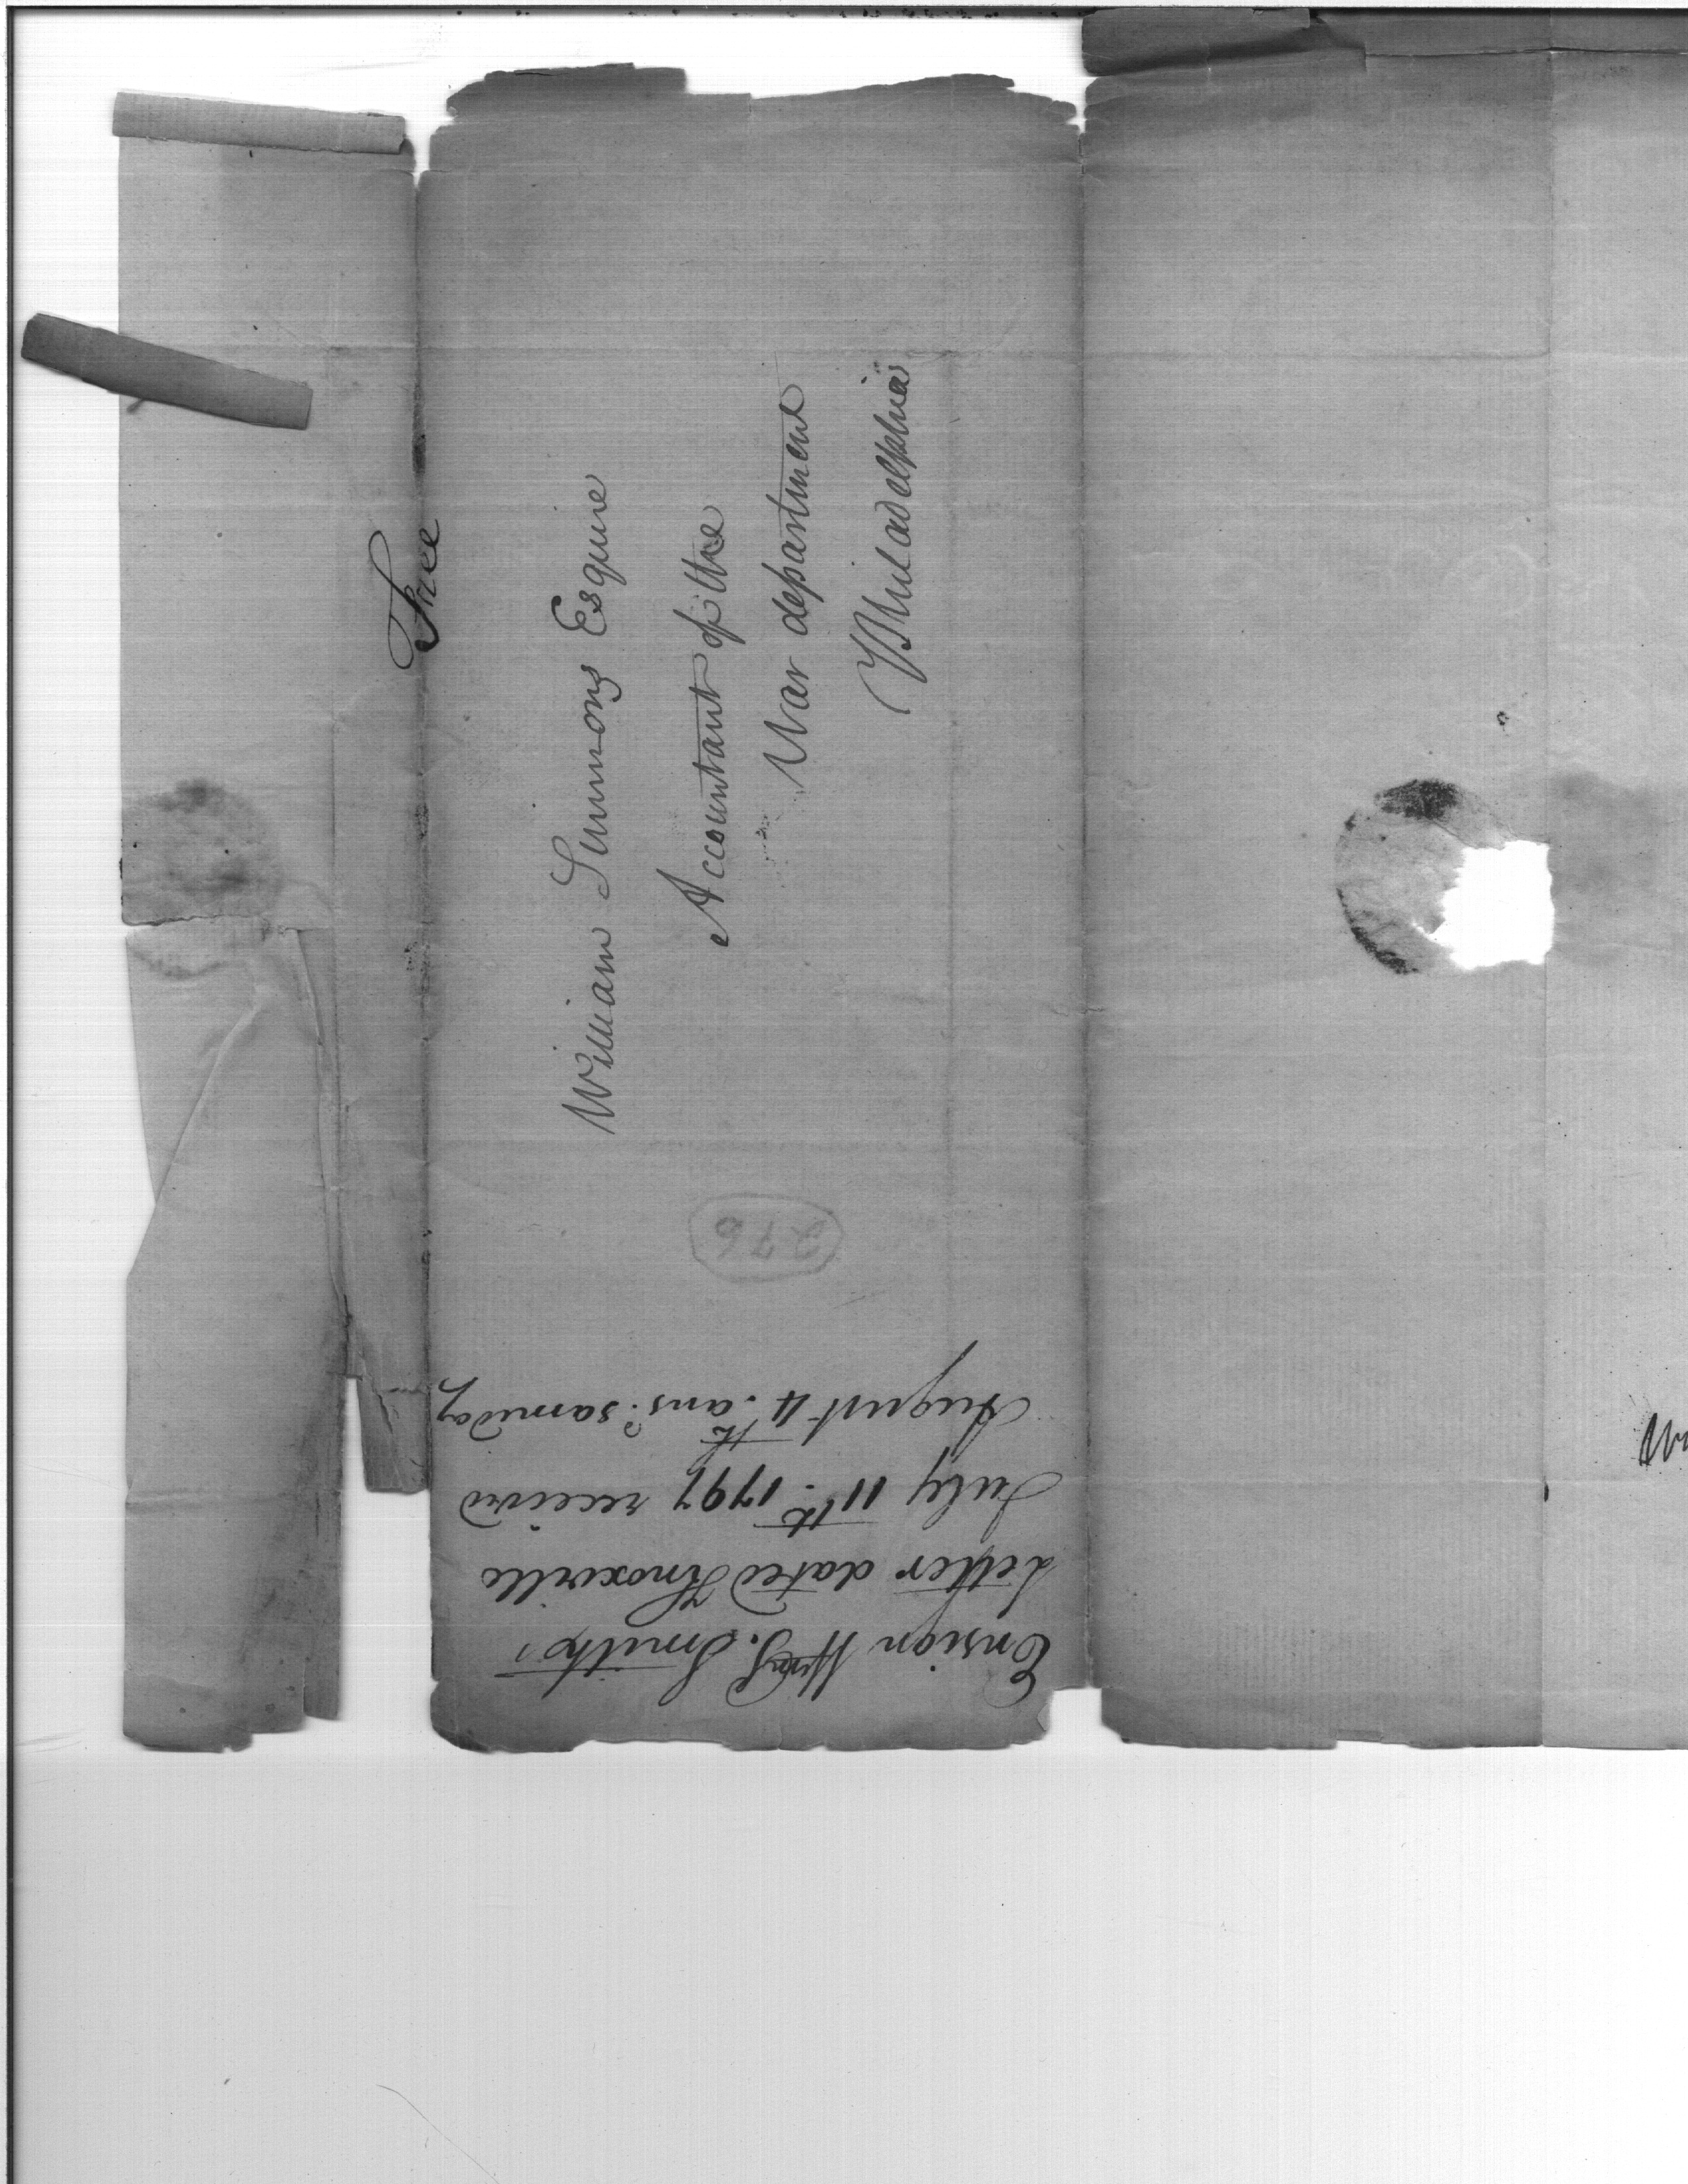 Free
William Simmons Esquire
Accountant of the
War department
Philadelphia
276
Ensign Wm S. Smith's
Letter dated Knoxville
July 11th 1797 received
August 4th ansd same day